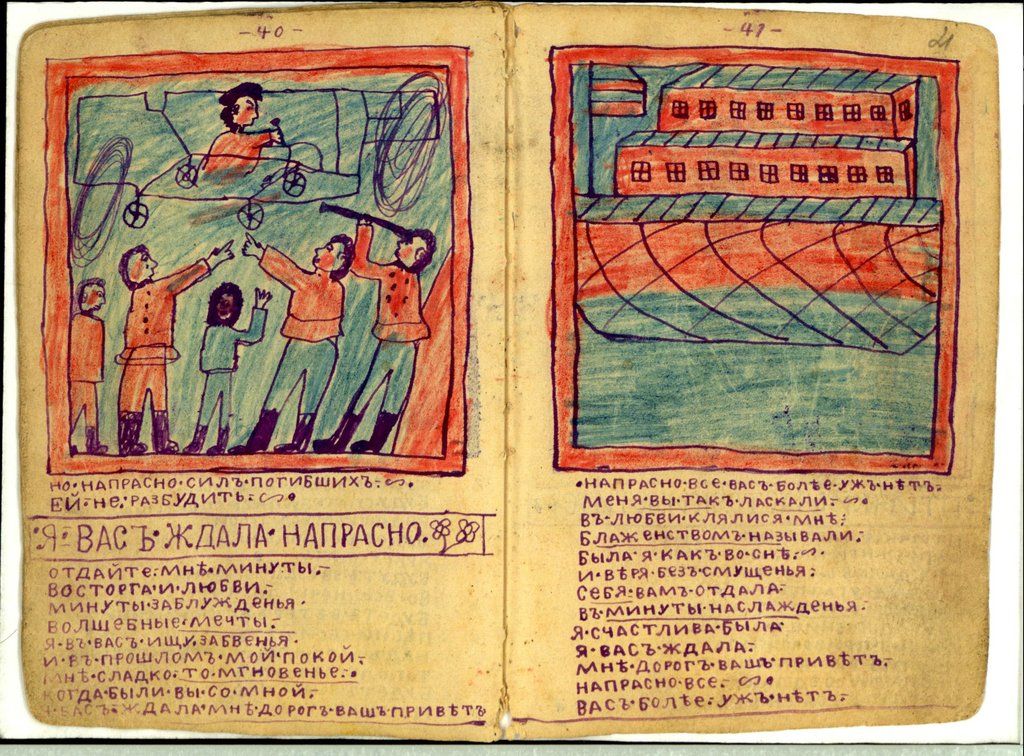 -40-
НО·НАПРАСНО·СИЛЪ·ПОГИБШИХЪ·
ЕЙ·НЕ·РАЗБУДИТЬ·
·Я·ВАСЪ·ЖДАЛА·НАПРАСНО·
ОТДАЙТЕ·МНѢ·МИНУТЫ,-
ВОСТОРГА·И·ЛЮБВИ,-
МИНУТЫ·ЗАБЛУЖДЕНЬЯ·
ВОЛШЕБНЫЕ·МЕЧТЫ,-
Я·ВЪ·ВАСЪ·ИЩУ·ЗАБВЕНЬЯ·
И·ВЪ·ПРОШЛОМЪ·МОЙ·ПОКОЙ,-
МНѢ·СЛАДКО·ТО·МГНОВЕНЬЕ·
КОГДА·БЫЛИ·ВЫ·СО·МНОЙ,-
Я·ВАСЪ·ЖДАЛА·МНѢ·ДОРОГЪ·ВАШЪ·ПРИВѢТЪ
-41-
21
·НАПРАСНО·ВСЕ·ВАСЪ·БОЛѢЕ·УЖЪ·НѢТЪ·
МЕНЯ·ВЫ·ТАКЪ·ЛАСКАЛИ·
ВЪ·ЛЮБВИ·КЛЯЛИСЯ·МНѢ;
БЛАЖЕНСТВОМЪ·НАЗЫВАЛИ·
БЫЛА·Я·КАКЪ·ВО·СНѢ·
И·ВѢРЯ·БЕЗЪ·СМУЩЕНЬЯ·
СЕБЯ·ВАМЪ·ОТДАЛА·
ВЪ·МИНУТЫ·НАСЛАЖДЕНЬЯ·
Я·СЧАСТЛИВА·БЫЛА
Я·ВАСЪ·ЖДАЛА·
МНѢ·ДОРОГЪ·ВАШЪ·ПРИВѢТЪ·
НАПРАСНО·ВСЕ·
ВАСЪ·БОЛѢЕ·УЖЪ·НѢТЪ·